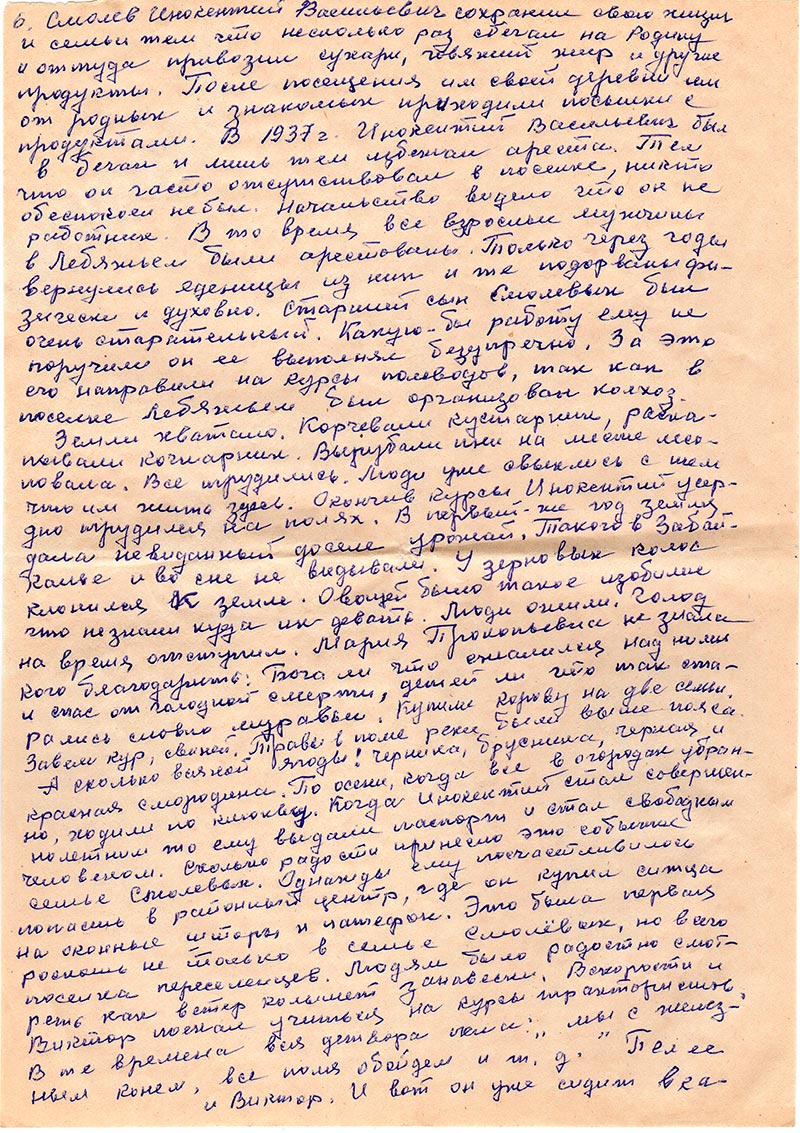 6. Смолев Инокентий Васильевич сохранил свою жизнь
и семьи тем что несколько раз сбегал на Родину
и оттуда привозил сухари, говяжий жир и другие
продукты. После посещения им своей деревни им
от родных и знакомых приходили посылки с
продуктами. В 1937г. Инокентий Васильевич был
в бегах и лишь тем избежал ареста. Тем
что он часто отсутствовал в поселке, никто
обеспокоен небыл. Начальство видело что он не
работник. В то время все взрослые мужчины
в Лебяжьем были арестованы. Только через годы
вернулись еденицы из них и те подорваны фи-
зически и духовно. Старший сын Смолевых был
очень старательный. Какую-бы работу ему не
поручили он ее выполнял бездпречно. За это
его направили на курсы полеводов, так как в
поселке Лебяжьем был организован колхоз.
Земли хватало. Корчевали кустарник, распа-
хивали кочкарник. Вырубали пни на месте лесо-
повала. Все трудились. Люди уже свыклись с тем
что им жить здесь. Окончив курсы Инокентий усер-
дно трудился на полях. В первый-же год земля
дала невиданный доселе урожай. Такого в Забай-
калье и во сне не видывали. У зерновых колос
клонился к земле. Овощей было такое изобилие
что незнали куда их девать. Люди ожили. Голод
на время отступил. Мария Прокопьевна не знала
кого благодарить: Бога ли что сжалился над ними
и спас от голодной смерти, детей ли что так ста-
рались словно муравьи. Купили корову на две семьи.
Завели кур, свиней. Травы в поле реки были выше пояса.
А сколько всякой ягоды! Черника, брусника, черная и
красная смородина. По осени, когда все в огородах убран-
но, ходили по клюкву. Когда Инокентий стал совершен-
нолетним то ему выдали паспорт и стал свободным
человеком. Сколько радости принесло это событие
семье Смолевых. Однажды ему посчастливилось
попасть в районный центр, где он купил ситца
на оконные шторы и патефон. Это была первая
роскошь не только в семье Смолёвых, но всего
поселка переселенцев. Людям было радостно смот-
реть как ветер колышет занавески. Вскорости и
Виктор поехал учиться на курсы трактористов.
В те времена вся детвора пела: „Мы с желез-
ным конем, все поля обойдем и т. д." Пел ее
и Виктор. И вот он уже сидит в ка-